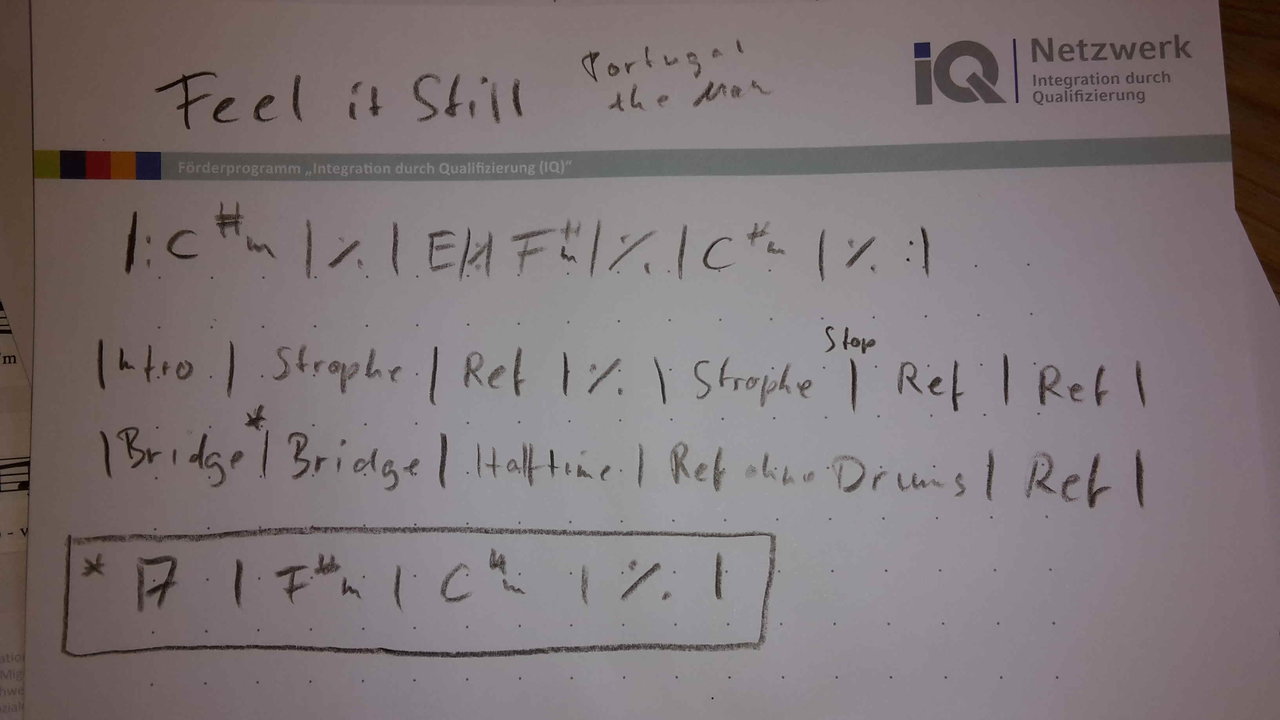 Feel it Still
Portugal
the Man
iQ
Netzwerk
Integration durch
Qualifizierung
Förderprogramm „Integration durch Qualifizierung (IQ)“
|: C#m | % | E | F#m | % | C#m | % :|
Stop
| Intro | Strophe | Ref | % | Strophe | Ref | Ref |
| Bridge* | Bridge | Halftime | Ref ohne Drums | Ref |
* A | F#m | C#m | % |